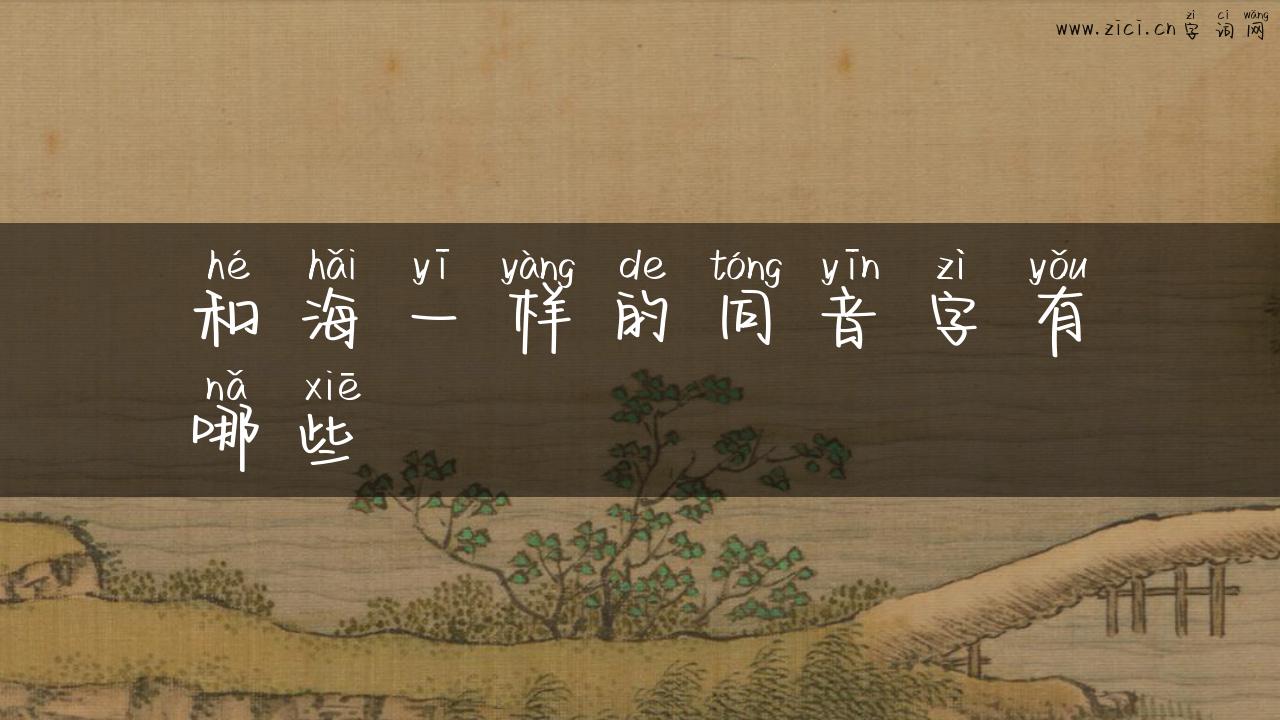 zì cí wǎng
www.zici.cn 字词网
hé hǎi yī yàng de tóng yīn zì yǒu
和海一样的同音字有
nǎ xiē
哪些